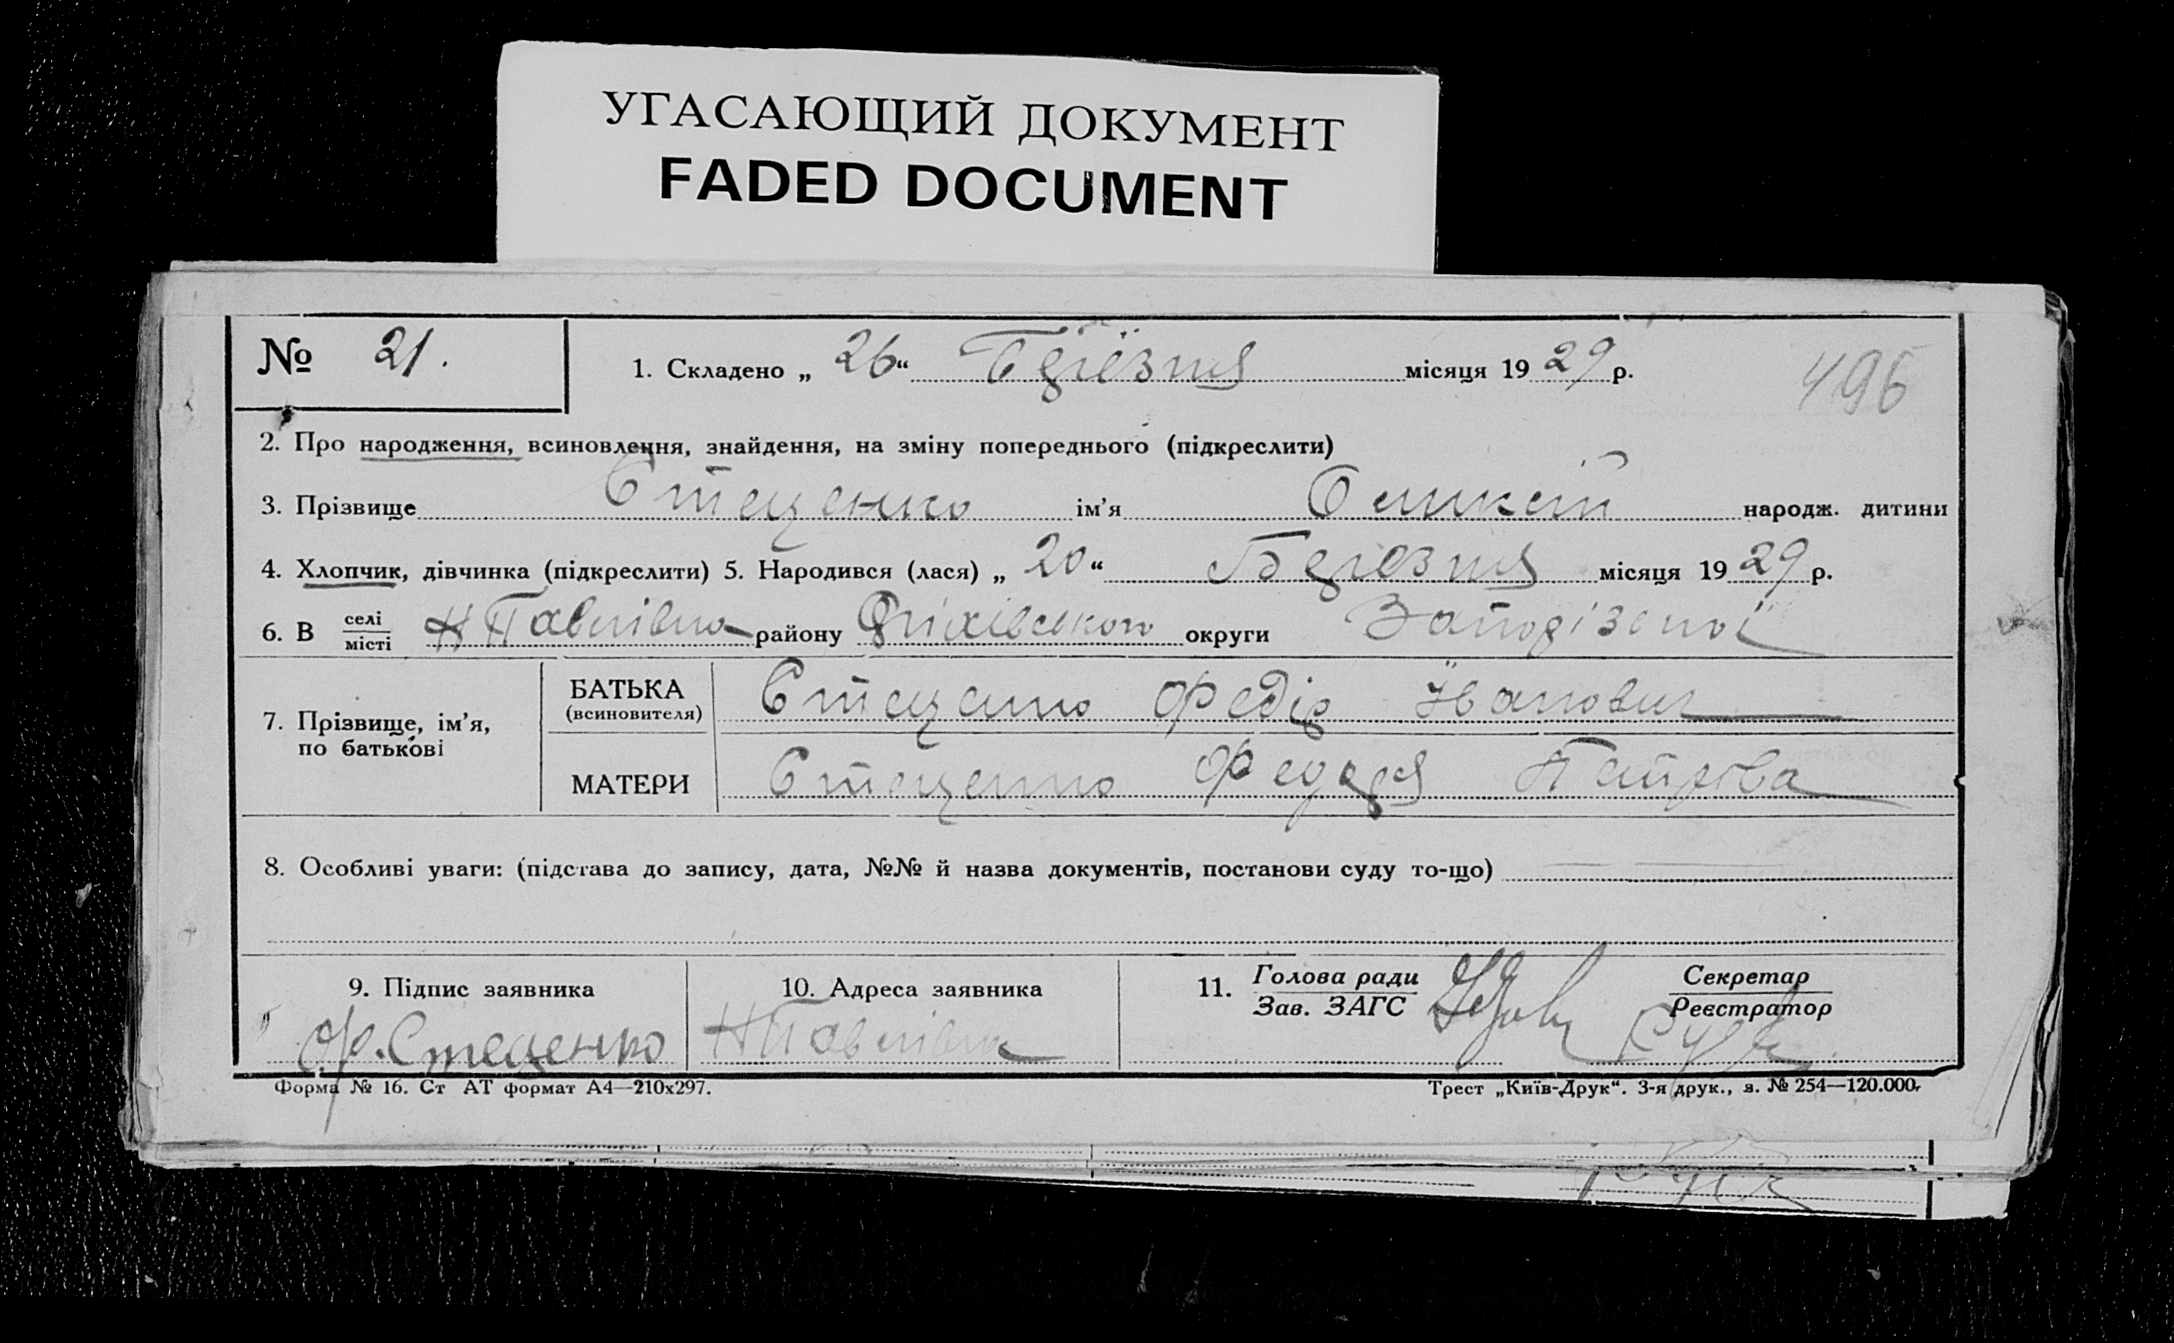 УГАСАЮЩИЙ ДОКУМЕНТ
FADED DOCUMENT
№ 21. 1. Складено „ 26 “ Березня місяця 19 29 р.
496
2. Про народження, всиновлення, знайдення, на зміну попереднього (підкреслити)
3. Прізвище Стеценко ім’я народж. дитини
4. Хлопчик, дівчинка (підкреслити) 5. Народився (лася) „ 20 “ Березня місяця 19 29 р.
6. В селі місті Н Павлівка району Оріхівського округи Запорізької
7. Прізвище, ім’я, по батькові
БАТЬКА (всиновителя) Стеценко Федір Іванович
МАТЕРИ Стеценко Федора Петрова
8. Особливі уваги: (підстава до запису, дата, №№ й назва документів, постанови суду то-що)
9. Підпис заявника
Ф. Стеценко
10. Адреса заявника
Н Павлівка
11. Голова ради Зав. ЗАГС
Секретар Реєстратор
Форма № 16. Ст АТ формат А4—210х297.
Трест „Київ-Друк“. 3-я друк., з. № 254—120.000.